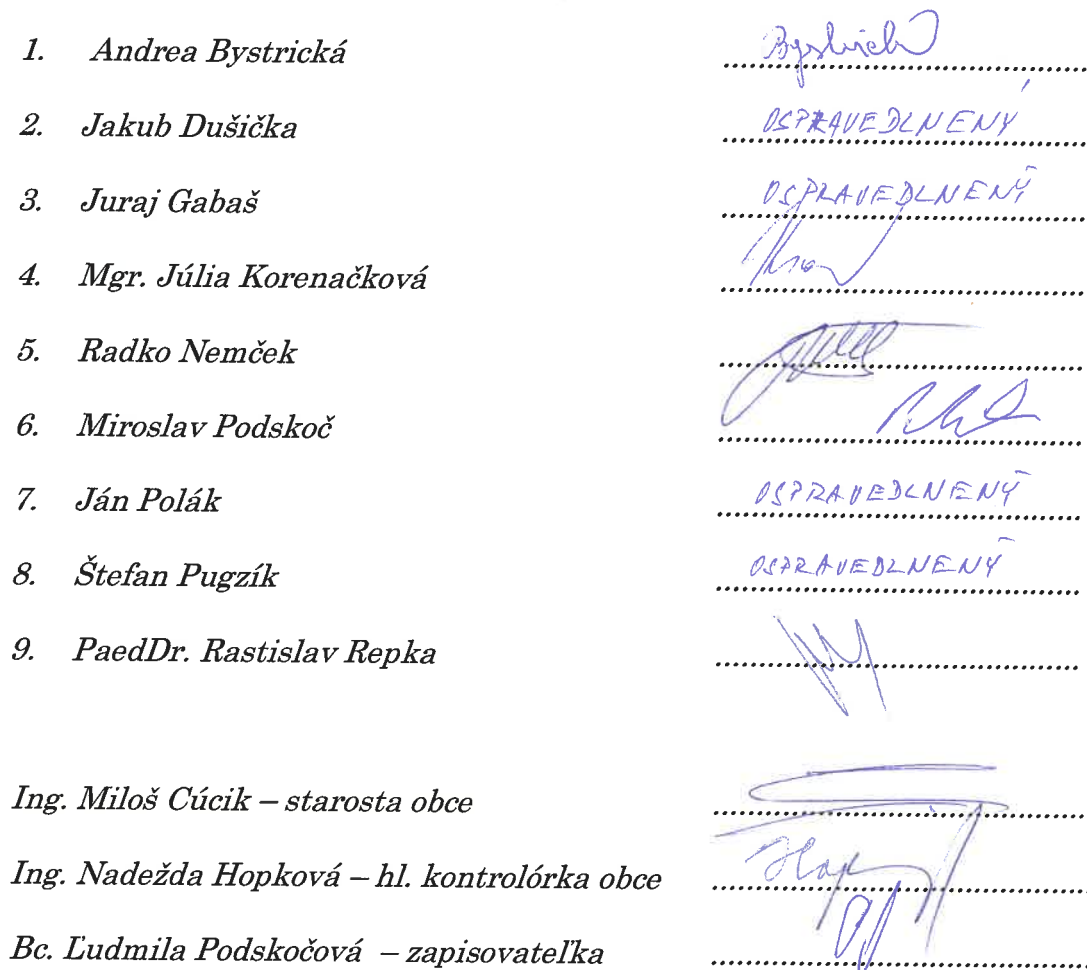 1. Andrea Bystrická
2. Jakub Dušička OSPRAVEDLNENÝ
3. Juraj Gabaš OSPRAVEDLNENÝ
4. Mgr. Júlia Korenačková
5. Radko Nemček
6. Miroslav Podskoč
7. Ján Polák OSPRAVEDLNENÝ
8. Štefan Pugzík OSPRAVEDLNENÝ
9. PaedDr. Rastislav Repka
Ing. Miloš Cúcik – starosta obce
Ing. Nadežda Hopková – hl. kontrolórka obce
Bc. Ľudmila Podskočová – zapisovateľka